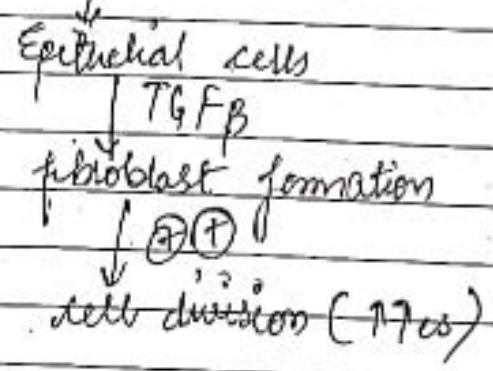 ↓
Epithelial cells
↓ TGFβ
fibroblast formation
↓ ⊕⊕
cell division (↑↑es)